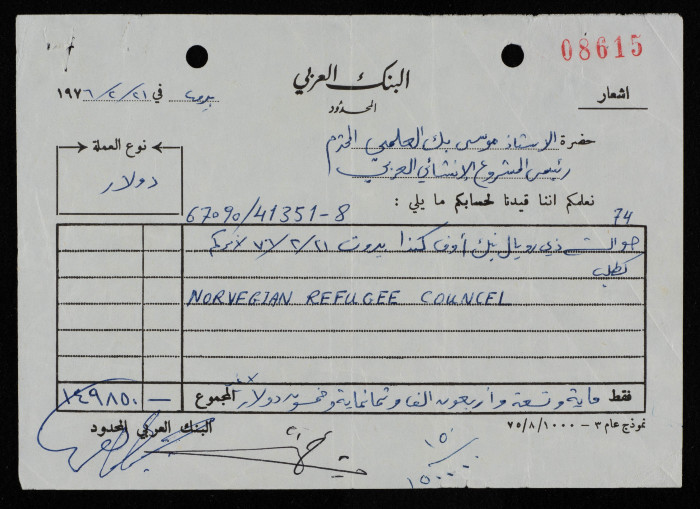 08615
البنك العربي
المحدود
اشعار
في ٢١/٢/١٩٧٦
نوع العملة
دولار
حضرة الاستاذ موسى بك العلمي المحترم
رئيس المشروع الإنشائي العربي
نعلمكم اننا قيدنا لحسابكم ما يلي :
67090/41351-8
74
ذي رويال بنك أوف كندا بيروت ٢١/٢/٧٦ لأمركم
NORVEGIAN REFUGEE COUNCEL
فقط ماية وتسعة واربعون الف وثمانماية وخمسون دولار المجموع
١٤٩٨٥٠ —
البنك العربي المحدود
نموذج عام ٣ - ٧٥/٨/١٠٠٠
١٥٠